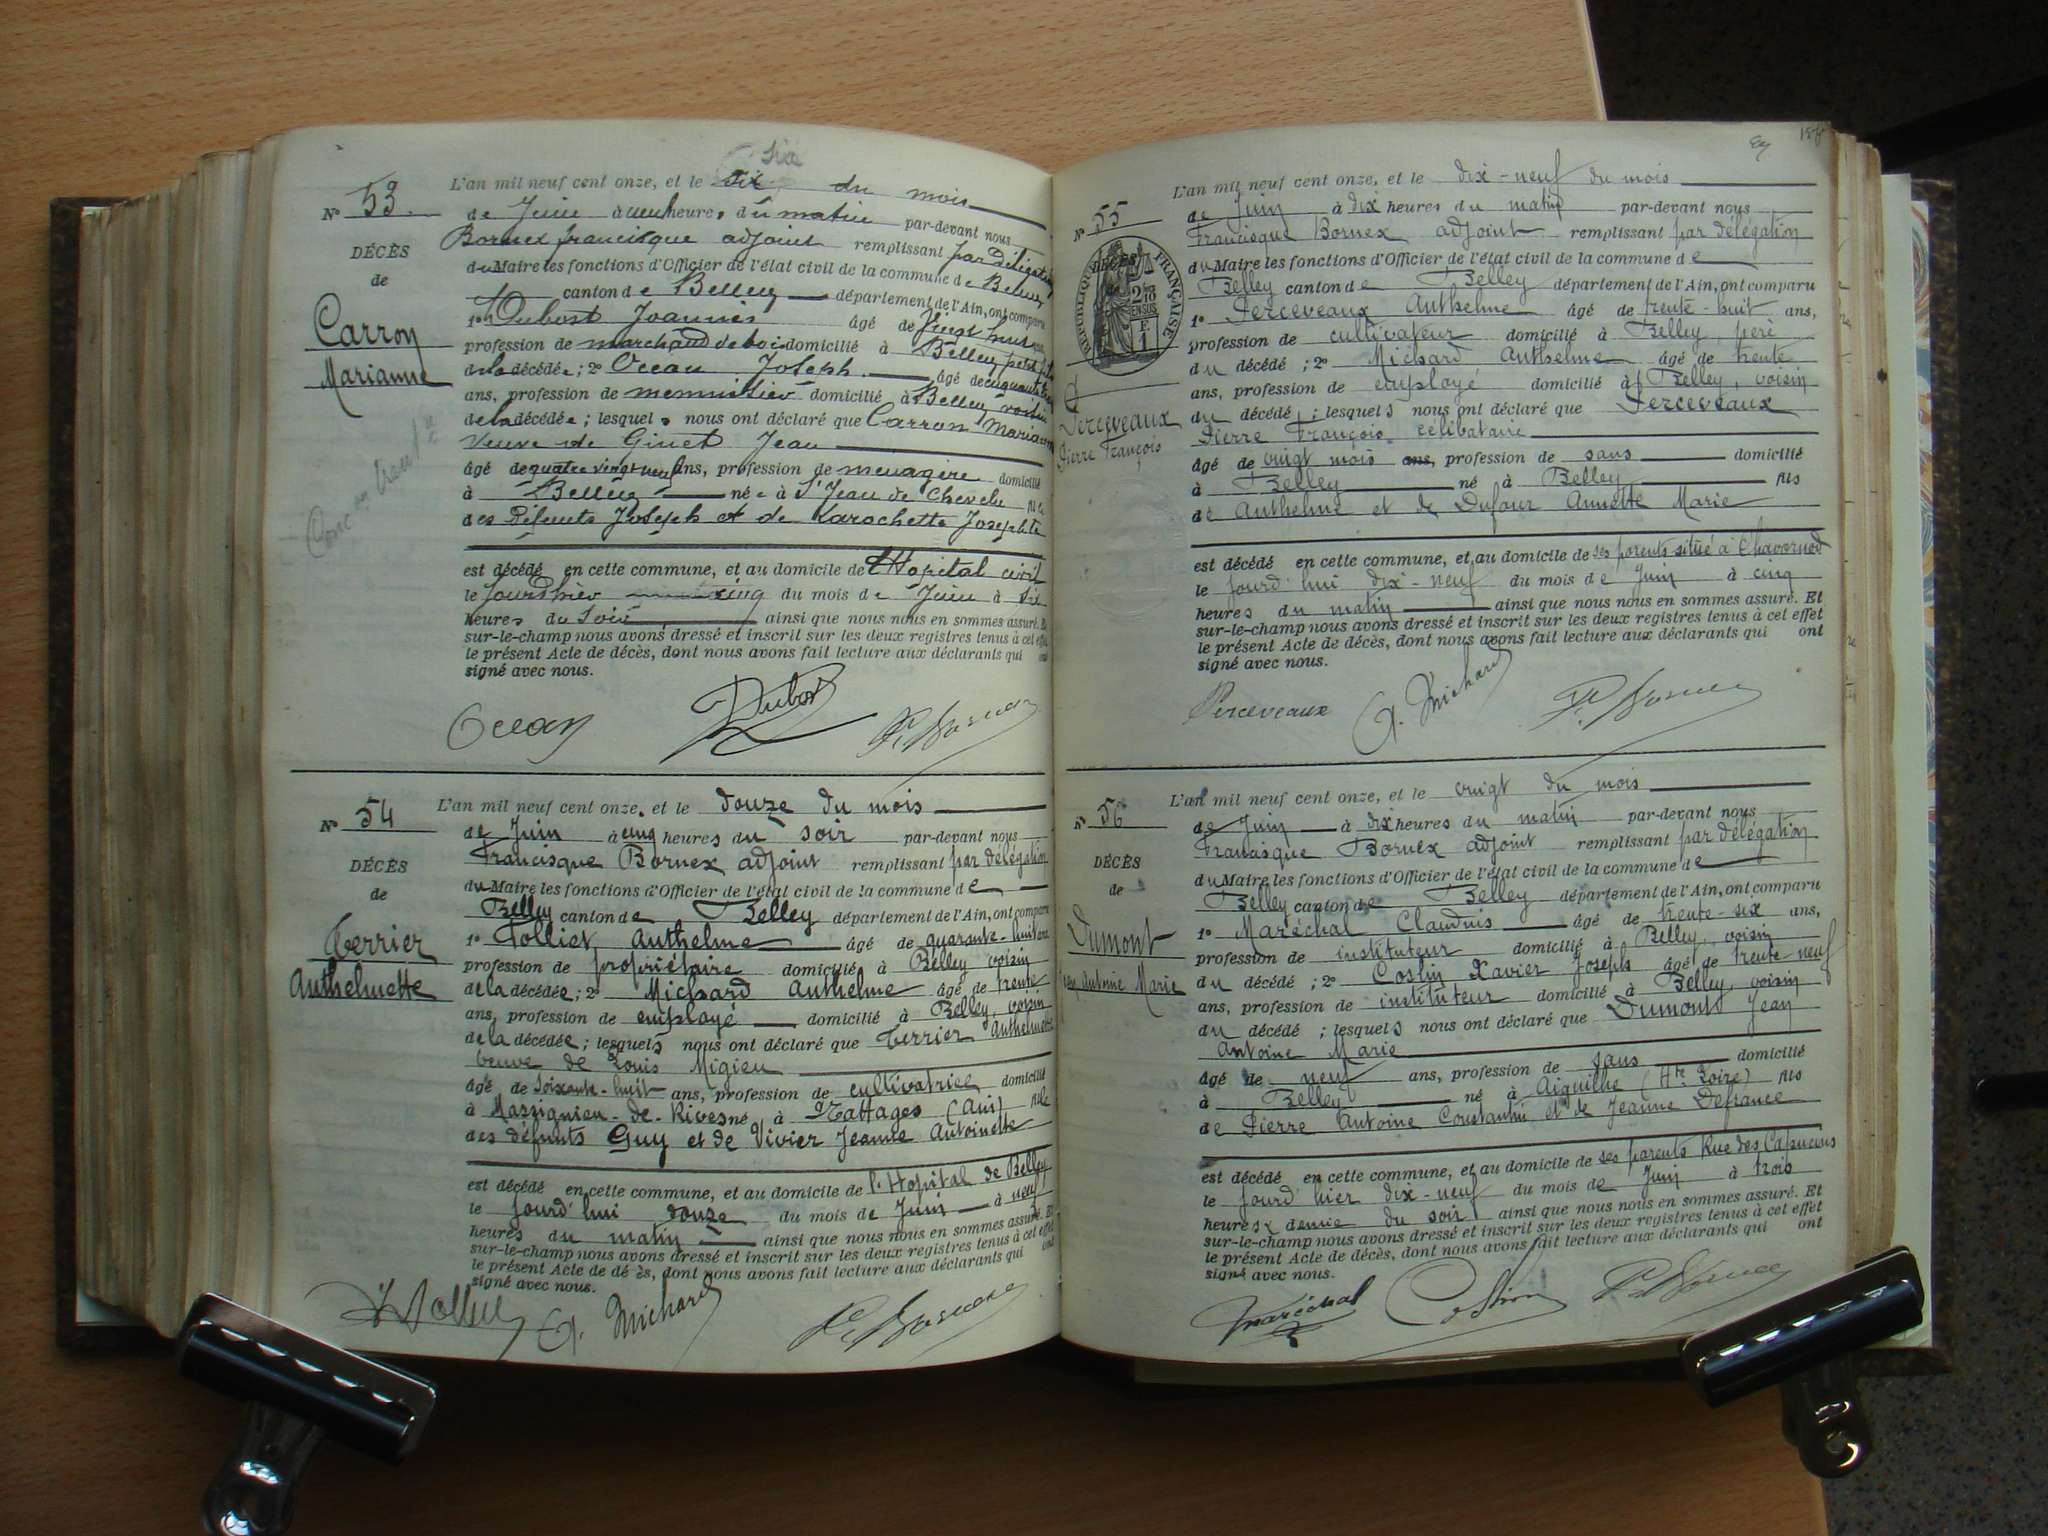 Six
L'an mil neuf cent onze, et le six du mois
N° 53.
de Juin à neuf heures du matin par-devant nous
Bornex francisque adjoint remplissant par délégation
DÉCÈS
du Maire les fonctions d'Officier de l'état civil de la commune de Belley
de
canton de Belley département de l'Ain, ont comparu
Carron
1° Dubost Joannès âgé de
Marianne
profession de marchand de bois domicilié à Belley, petit fils
de la décédée ; 2° Oceau Joseph âgé de cinquante
ans, profession de menuisier domicilié à Belley voisin
de la décédée ; lesquels nous ont déclaré que Carron Marianne
veuve de Ginet Jean
âgé de quatre vingt neuf ans, profession de menagère domicilié
à Belley née à St Jean de Chevelu fille
des défunts Joseph et de Larochette Josephte
est décédé en cette commune, et au domicile de l'Hopital civil
le jourd'hier cinq du mois de Juin à six
heures du soir ainsi que nous nous en sommes assuré. Et
sur-le-champ nous avons dressé et inscrit sur les deux registres tenus à cet effet
le présent Acte de décès, dont nous avons fait lecture aux déclarants qui ont
signé avec nous.
Oceau Dubost F. Bornex
L'an mil neuf cent onze, et le douze du mois
N° 54
de Juin à cinq heures du soir par-devant nous
Francisque Bornex adjoint remplissant par délégation
DÉCÈS
du Maire les fonctions d'Officier de l'état civil de la commune de
de
Belley canton de Belley département de l'Ain, ont comparu
Terrier
1° Folliet Anthelme âgé de quarante-huit ans
Anthelmette
profession de propriétaire domicilié à Belley voisin
de la décédée ; 2° Michard Anthelme âgé de trente
ans, profession de employé domicilié à Belley, voisin
de la décédée ; lesquels nous ont déclaré que Terrier Anthelmette
Veuve de Louis Migieu
âgé de soixante-huit ans, profession de cultivatrice domicilié
à Massignieu-de-Rives né à Nattages (Ain) fille
des défunts Guy et de Vivier Jeanne Antoinette
est décédé en cette commune, et au domicile de l'Hopital de Belley
le jourd'hui douze du mois de Juin à neuf
heures du matin ainsi que nous nous en sommes assuré. Et
sur-le-champ nous avons dressé et inscrit sur les deux registres tenus à cet effet
le présent Acte de dé ès, dont nous avons fait lecture aux déclarants qui ont
signé avec nous.
A. Michard F. Bornex
L'an mil neuf cent onze, et le dix-neuf du mois
N° 55
de Juin à dix heures du matin par-devant nous
Francisque Bornex adjoint remplissant par délégation
DÉCÈS
RÉPUBLIQUE FRANÇAISE
du Maire les fonctions d'Officier de l'état civil de la commune de
Belley canton de Belley département de l'Ain, ont comparu
1° Perceveaux Anthelme âgé de trente-huit ans,
profession de cultivateur domicilié à Belley, père
du décédé ; 2° Michard Anthelme âgé de trente
ans, profession de employé domicilié à Belley, voisin
du décédé ; lesquels nous ont déclaré que Perceveaux
Perceveaux
Pierre François
Pierre François célibataire
âgé de vingt mois ans, profession de sans domicilié
à Belley né à Belley fils
de Anthelme et de Dufour Annette Marie
est décédé en cette commune, et au domicile de ses parents situé à Chavornod
le jourd'hui dix-neuf du mois de Juin à cinq
heures du matin ainsi que nous nous en sommes assuré. Et
sur-le-champ nous avons dressé et inscrit sur les deux registres tenus à cet effet
le présent Acte de décès, dont nous avons fait lecture aux déclarants qui ont
signé avec nous.
Perceveaux A. Michard F. Bornex
L'an mil neuf cent onze, et le vingt du mois
N° 56
de Juin à dix heures du matin par-devant nous
Francisque Bornex adjoint remplissant par délégation
DÉCÈS
du Maire les fonctions d'Officier de l'état civil de la commune de
de
Belley canton de Belley département de l'Ain, ont comparu
Dumont
1° Maréchal Claudius âgé de trente-six ans,
profession de instituteur domicilié à Belley, voisin
Antoine Marie
du décédé ; 2° Costin Xavier Joseph âgé de trente-neuf
ans, profession de instituteur domicilié à Belley, voisin
du décédé ; lesquels nous ont déclaré que Dumont Jean
Antoine Marie
âgé de neuf ans, profession de sans domicilié
à Belley né à Aiguilhe (Hte Loire) fils
de Pierre Antoine Constantin et de Jeanne Defrance
est décédé en cette commune, et au domicile de ses parents Rue des Capucins
le jourd'hier dix-neuf du mois de Juin à trois
heures & demie du soir ainsi que nous nous en sommes assuré. Et
sur-le-champ nous avons dressé et inscrit sur les deux registres tenus à cet effet
le présent Acte de décès, dont nous avons fait lecture aux déclarants qui ont
signé avec nous.
Maréchal Costin F. Bornex